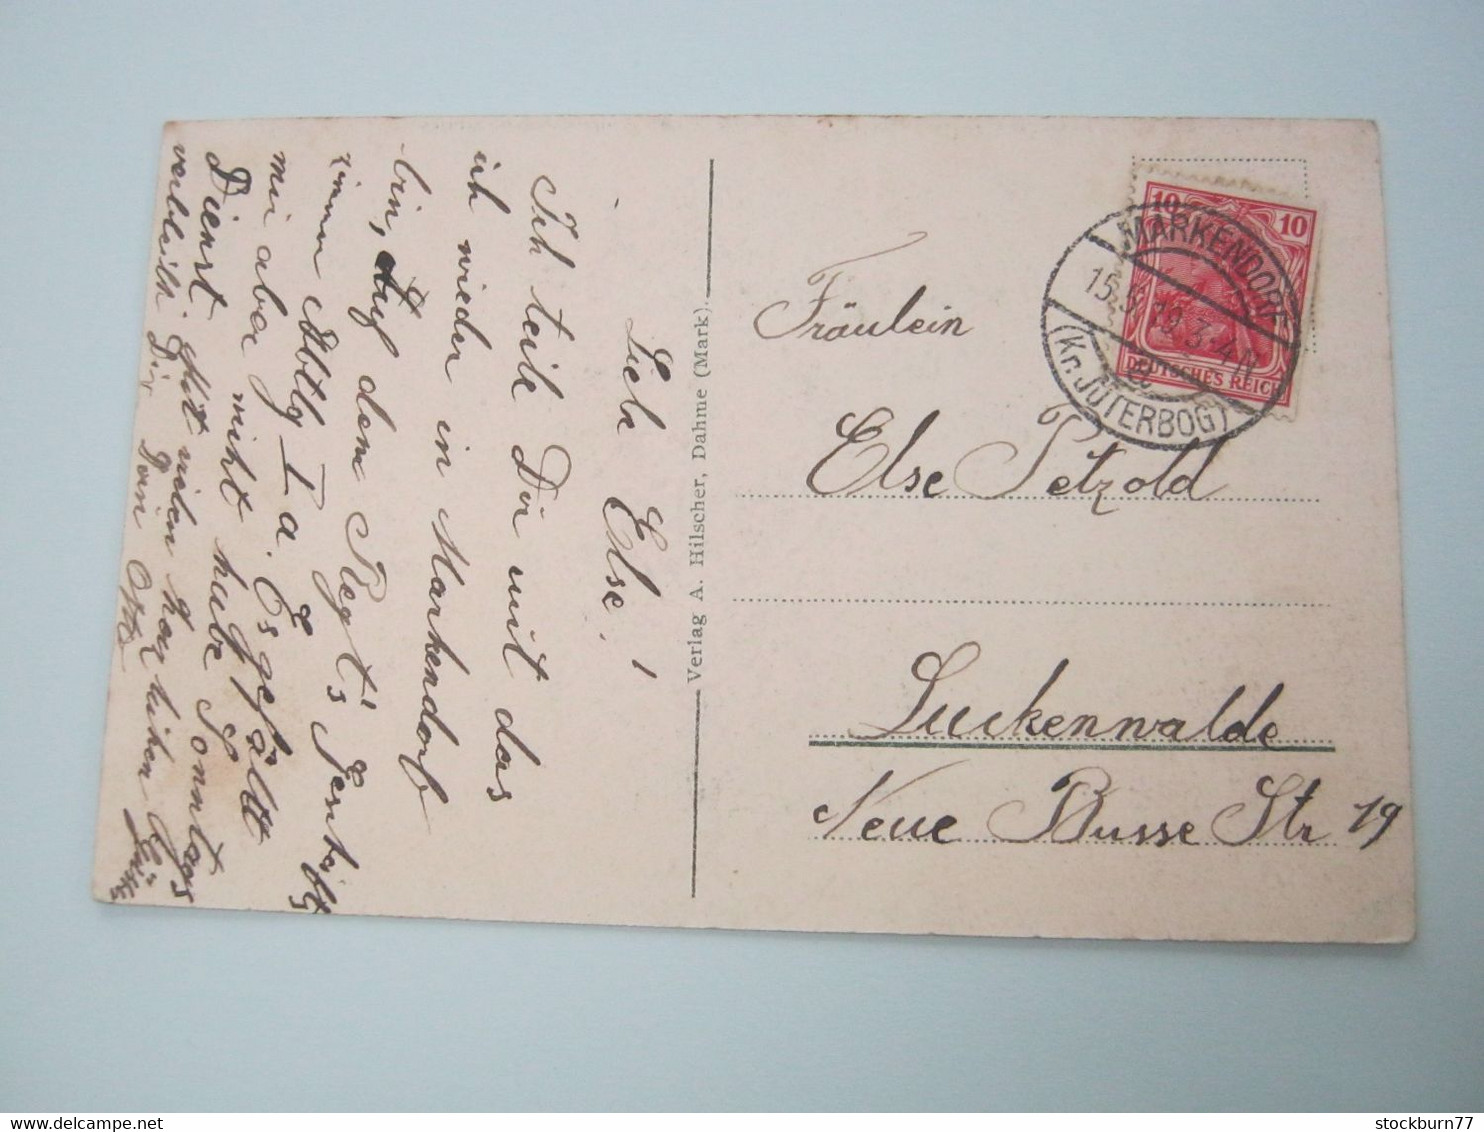 Lieb Else!
Ich teile Dir mit das
ich wieder in Markendorf
bin, Auf dem Regt's Geschäfts
zimmer Abtlg I a. Es gefällt
mir aber nicht habe Sonntags
Dienst. Mit vielen herzlichen Grüßen
verbleibe Dir Dein Otto
Verlag A. Hilscher, Dahme (Mark).
10 10
DEUTSCHES REICH
MARKENDORF
15.5.19.3-4N
a
(Kr. JÜTERBOG)
Fräulein
Else Petzold
Luckenwalde
Neue Busse Str 19
stockburn77